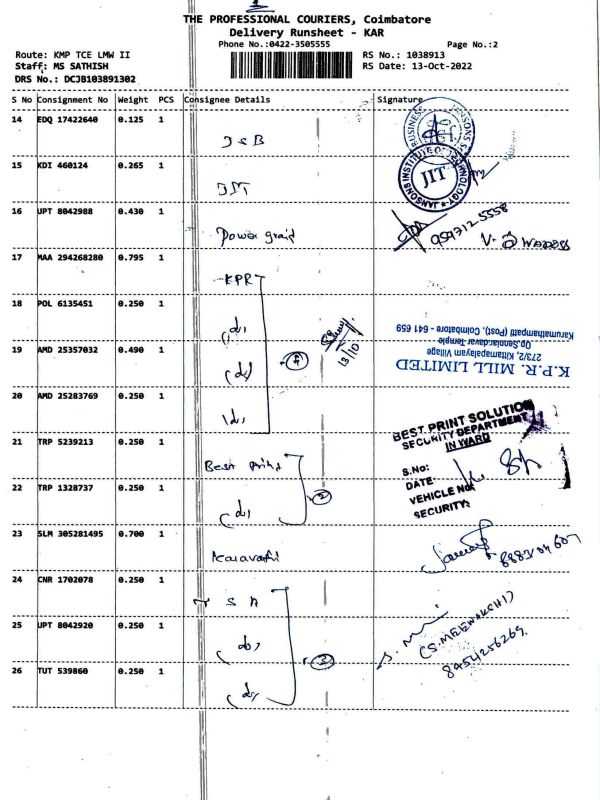 THE PROFESSIONAL COURIERS, Coimbatore
Delivery Runsheet - KAR
Phone No.:0422-3505555
Page No.:2
Route: KMP TCE LMW II
RS No.: 1038913
Staff: MS SATHISH
RS Date: 13-Oct-2022
DRS No.: DCJB103891302
S No Consignment No Weight PCS Consignee Details Signature
14 EDQ 17422640 0.125 1
JSB
15 KDI 460124 0.265 1
JIT
JANSONS INSTITUTE OF TECHNOLOGY
16 UPT 8042988 0.430 1
Power graid
17 MAA 294268280 0.795 1
KPR
18 POL 6135451 0.250 1
(do)
13/10
19 AMD 25357032 0.490 1
(do)
4
K.P.R. MILL LIMITED
273/2, Kittampalayam Village
Karumathampatti (Post), Coimbatore - 641 659
20 AMD 25283769 0.250 1
(do)
21 TRP 5239213 0.250 1
Best Print
BEST PRINT SOLUTION
SECURITY DEPARTMENT
IN WARD
S.No:
DATE:
VEHICLE No:
SECURITY:
22 TRP 1328737 0.250 1
(do)
2
23 SLM 305281495 0.700 1
24 CNR 1702078 0.250 1
T S A
25 UPT 8042920 0.250 1
(do)
3
(S.MEENAKSHI)
8954256269
26 TUT 539860 0.250 1
(do)